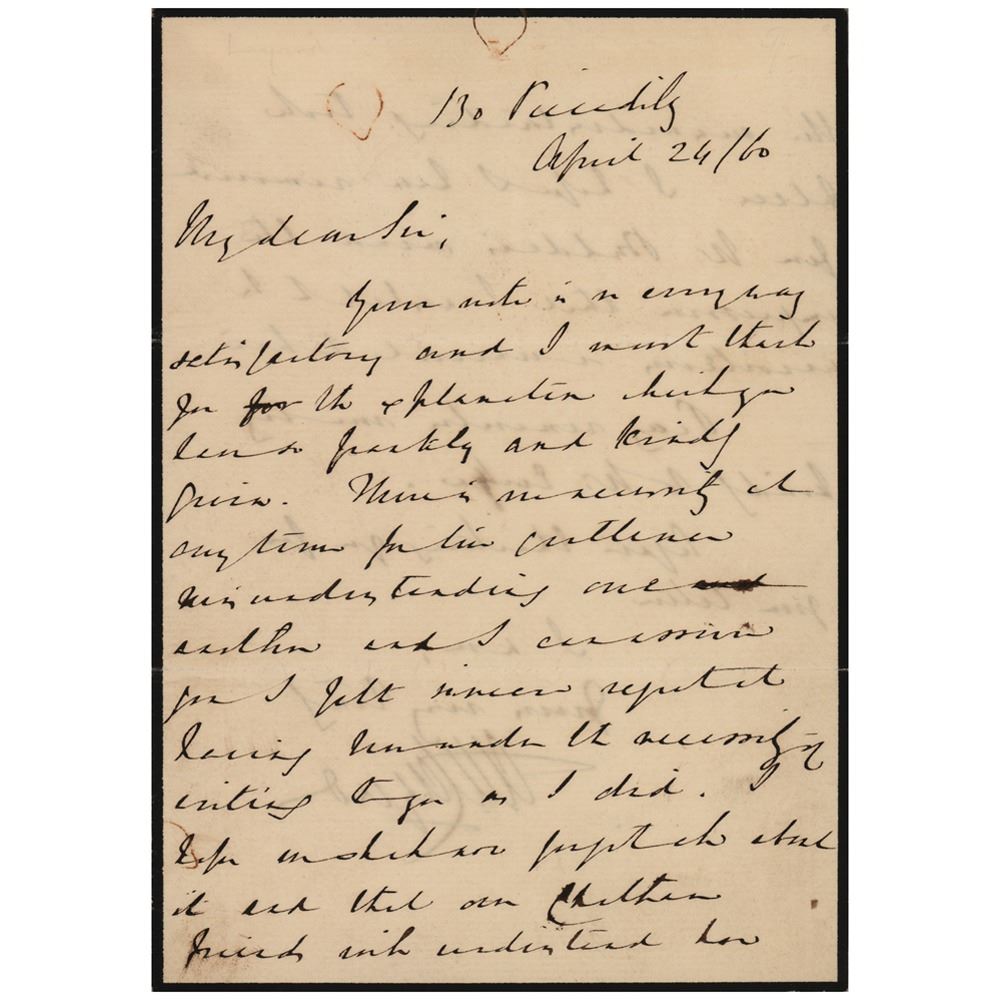 130 Piccadilly
April 24/60
My dear Sir,
Your note is in every way
satisfactory and I must thank
you for the explanation which you
have so frankly and kindly
given. There is no necessity at
any time for two gentlemen
misunderstanding one and
another and I can assure
you I felt sincere regret at
having been under the necessity of
writing to you as I did. I
hope we shall now forget all about
it and that our Chatham
friends will understand how